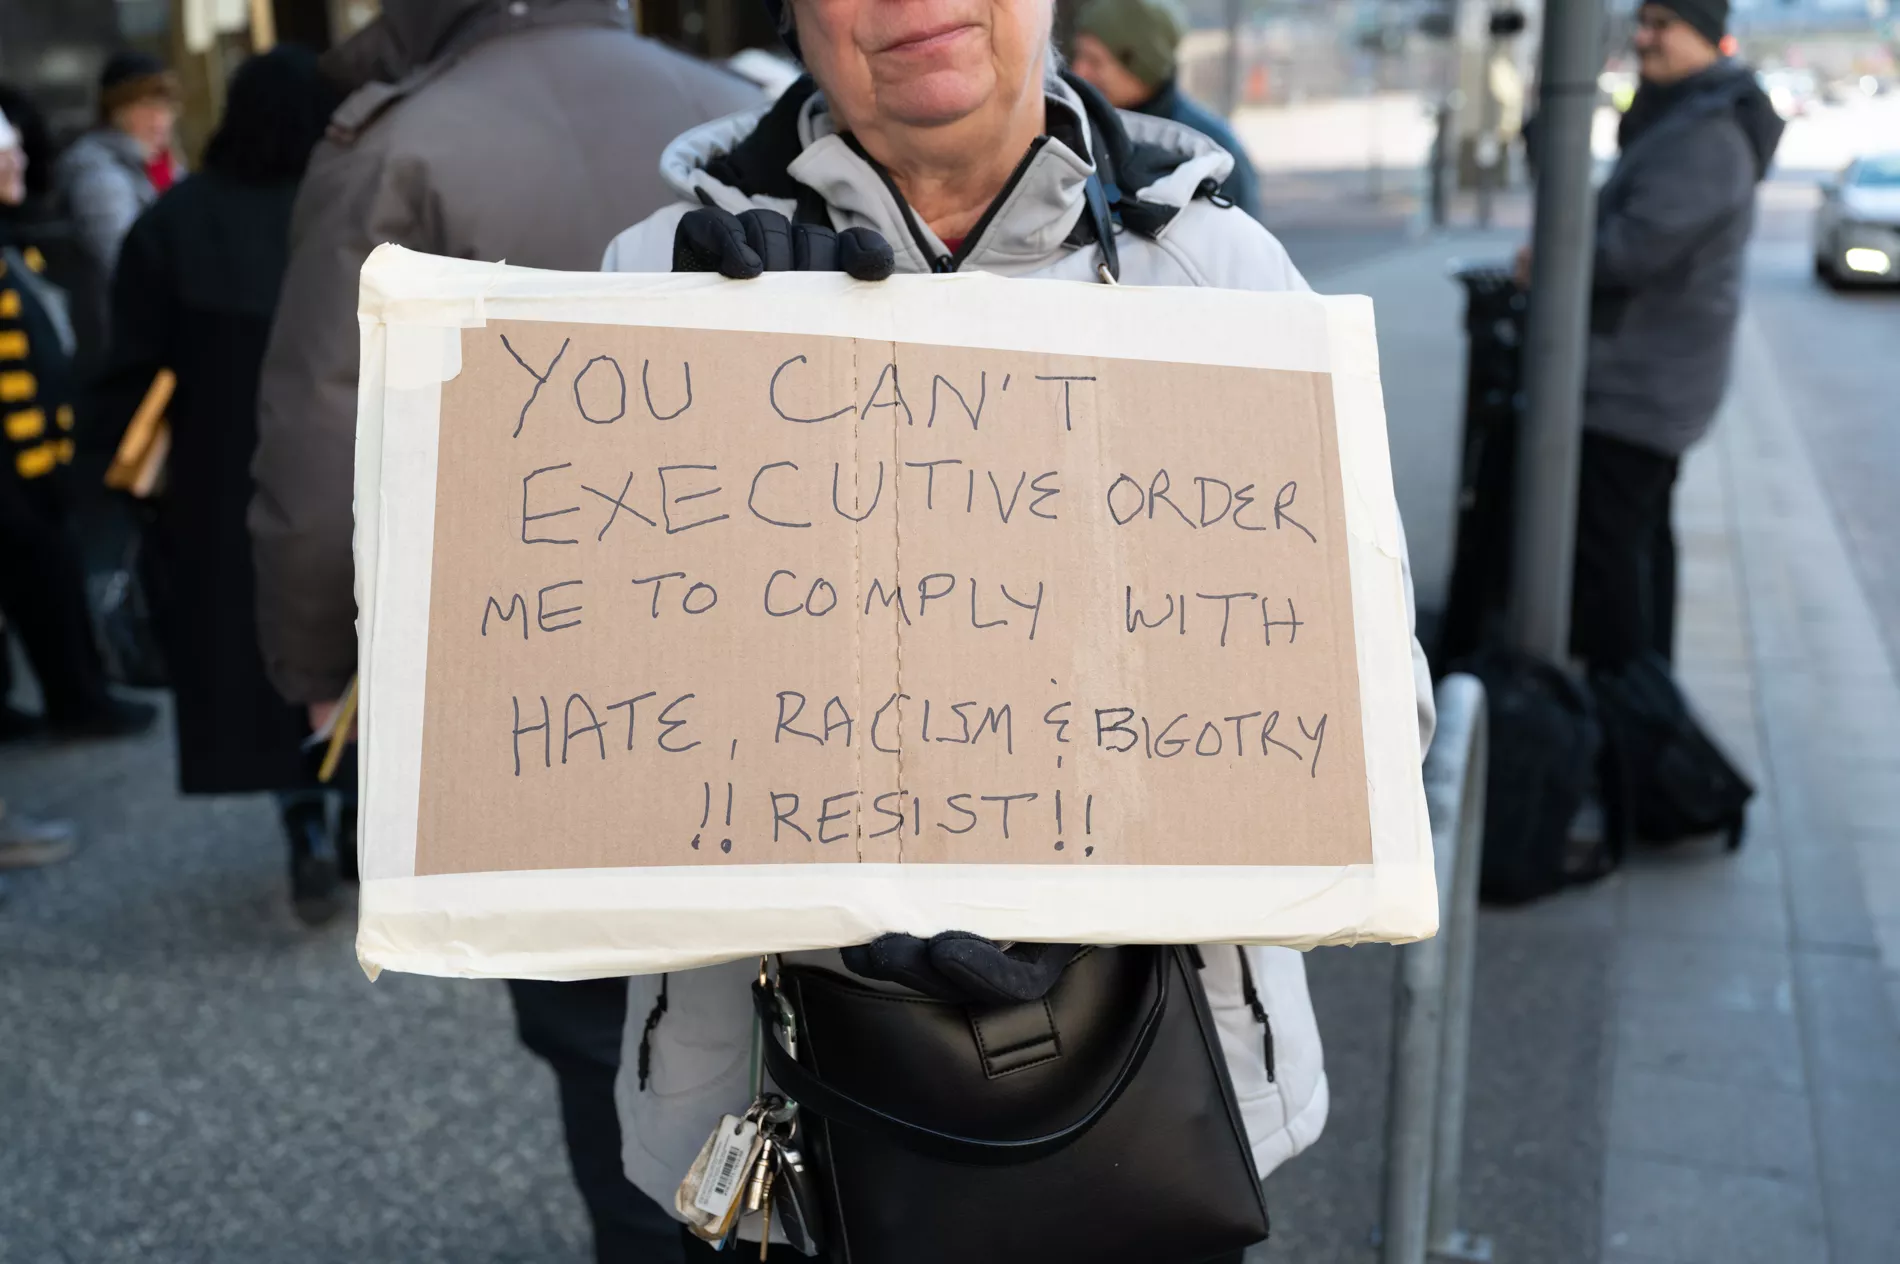 YOU CAN'T
EXECUTIVE ORDER
ME TO COMPLY WITH
HATE, RACISM & BIGOTRY
!! RESIST!!